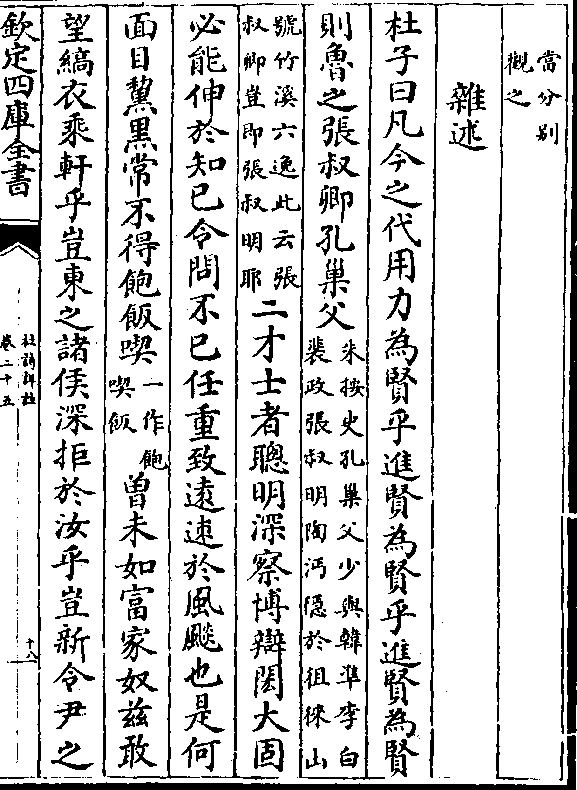 當分别
觀之
雜述
杜子曰凡今之代用力為賢乎進賢為賢乎進賢為賢
則魯之張叔卿孔巢父朱按史孔巢父少與韓準李白
裴政張叔明陶沔隱於徂徠山
號竹溪六逸此云張
叔卿豈即張叔明耶二才士者聰明深察博辯閎大固
必能伸於知已令問不已任重致遠速於風飈也是何
面目黧黒常不得飽飯喫一作飽
喫飯曽未如富家奴兹敢
望縞衣乘軒乎豈東之諸侯深拒於汝乎豈新令尹之
欽定四庫全書
杜詩詳註
卷二十五
十八